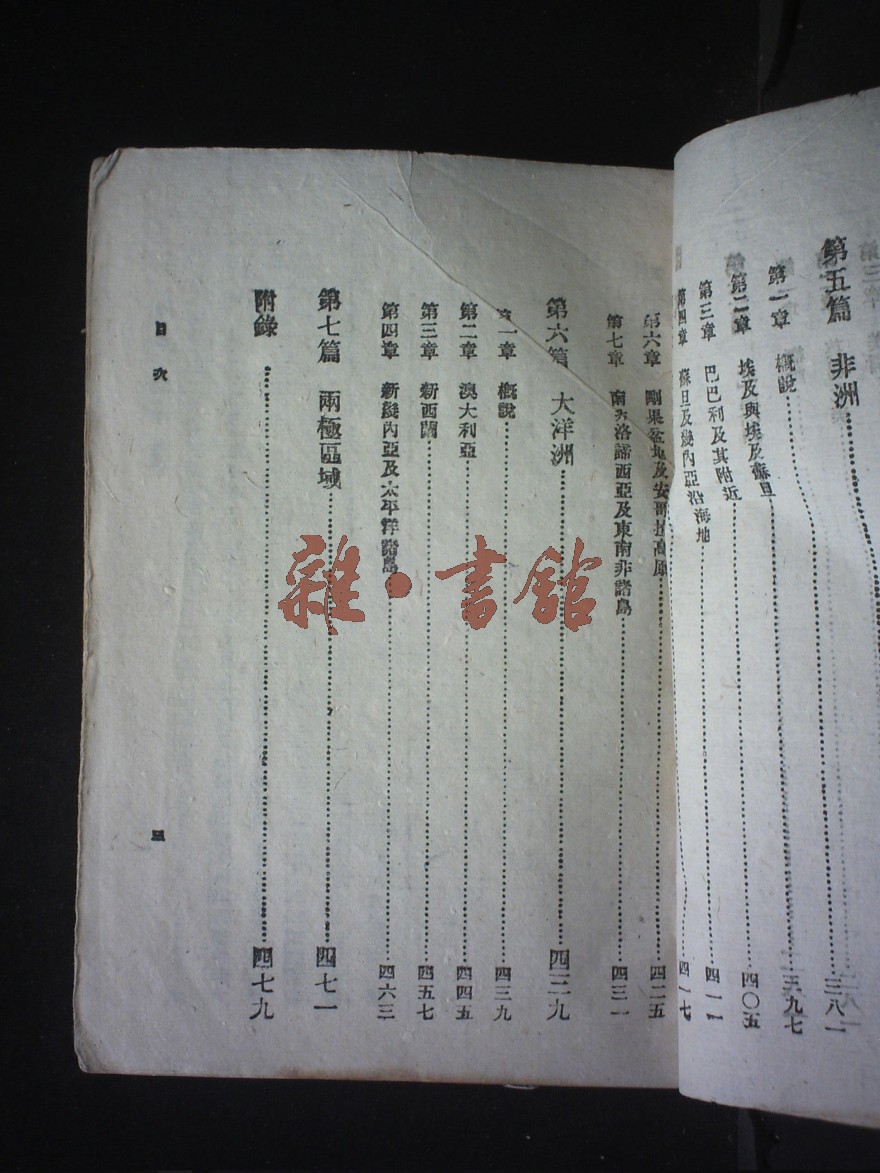 第五篇 非洲 三八一
第一章 概說 三九七
第二章 埃及與埃及蘇旦 四〇五
第三章 巴巴利及其附近 四一一
第四章 蘇旦及幾內亞沿海地 四一七
第六章 剛果盆地及安哥拉高原 四二五
第七章 南部洛諦西亞及東南非諸島 四三一
第六篇 大洋洲 四三九
第一章 概說 四三九
第二章 澳大利亞 四四五
第三章 新西蘭 四五七
第四章 新幾內亞及太平洋諸島 四六三
第七篇 兩極區域 四七一
附錄 四七九
目次
三
雜·書館